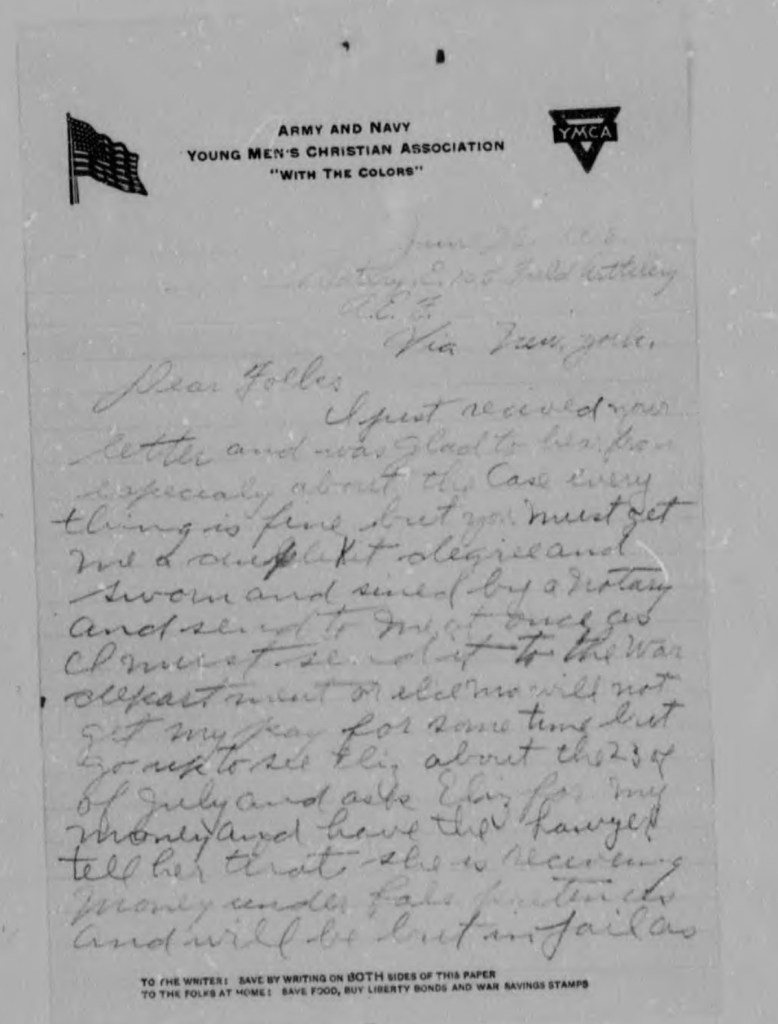 ARMY AND NAVY
YOUNG MEN'S CHRISTIAN ASSOCIATION
"WITH THE COLORS"
YMCA
June
Battery E. Field Artillery
A.E.F.
Via New York.
Dear Folks
I just recived your
letter and was glad to hear from
especialy about the Case every
thing is fine but you must get
me a degree and
sworn and sined by a notary
and send to me at once as
I must send it to the War
department or else will not
get my pay for some time but
go up to see Eliz about the 23 of
of July and ask Eliz for my
money and have the Lawyer
tell her that she is receiving
money under fals pretences
and will be but in jail as
TO THE WRITER: SAVE BY WRITING ON BOTH SIDES OF THIS PAPER
TO THE FOLKS AT HOME: SAVE FOOD, BUY LIBERTY BONDS AND WAR SAVINGS STAMPS